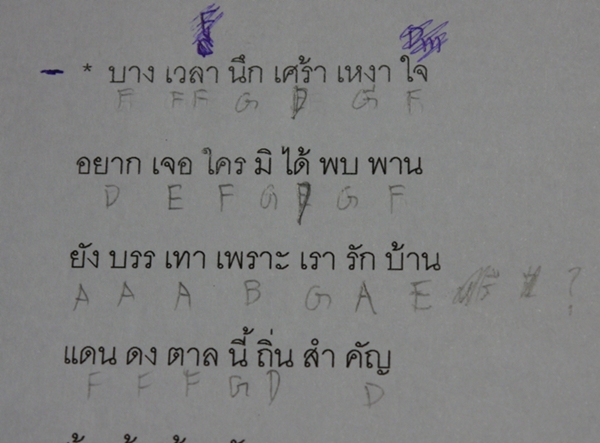 - * บาง เวลา นึก เศร้า เหงา ใจ
F FF G G F
อยาก เจอ ใคร มิ ได้ พบ พาน
D E F G G F
ยัง บรร เทา เพราะ เรา รัก บ้าน
A A A B G A E ?
แดน ดง ตาล นี้ ถิ่น สำ คัญ
F F F G D D